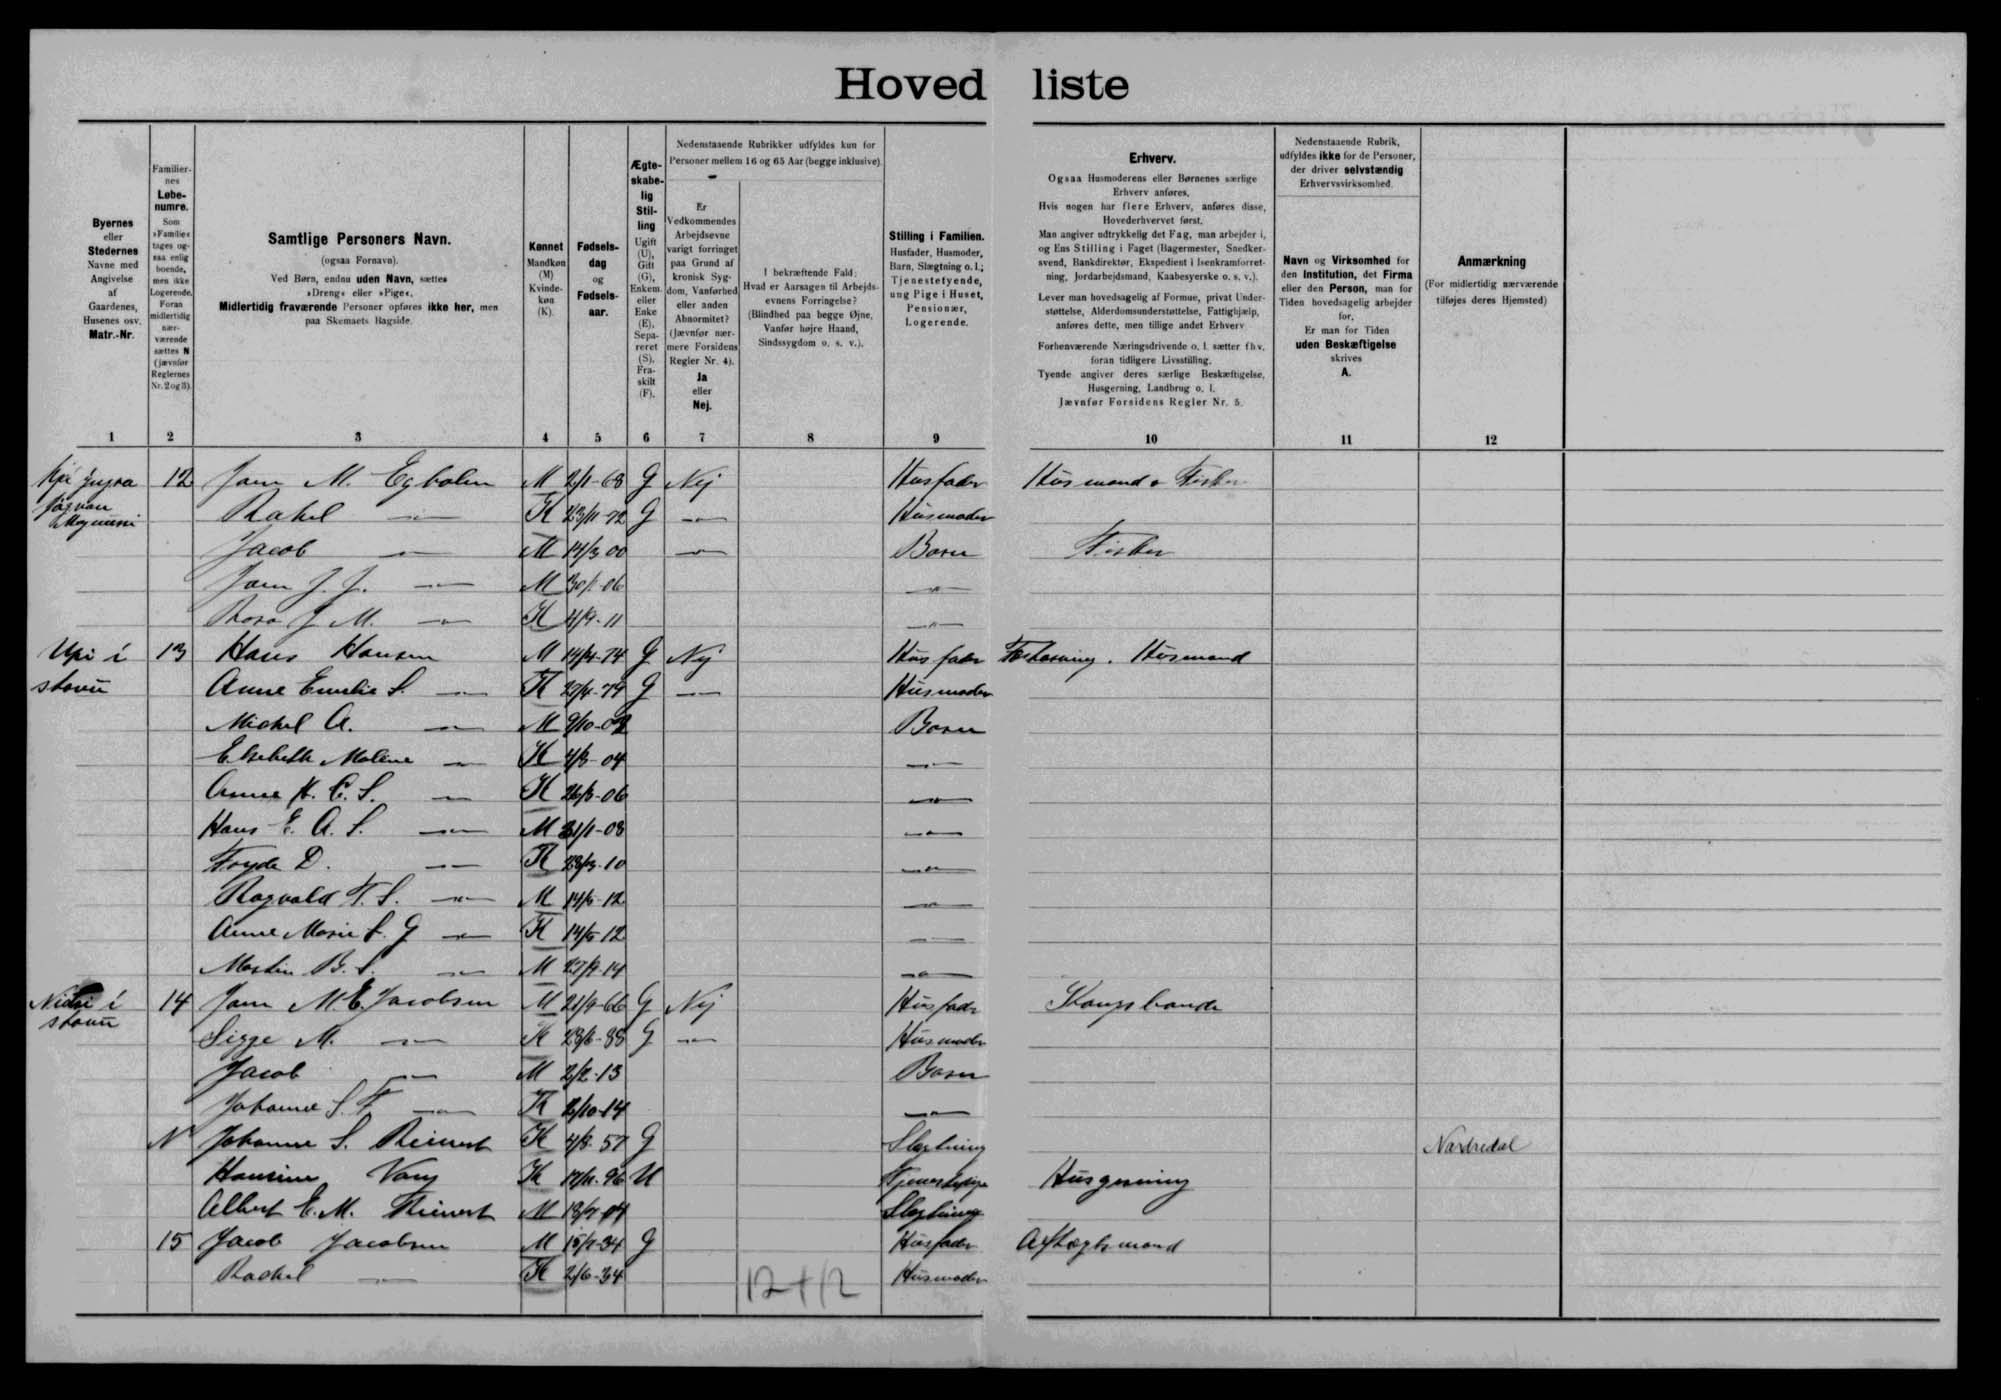 Hovedliste
Byernes
eller
Stedernes
Navne med
Angivelse
af
Gaardenes,
Husenes osv.
Matr.-Nr.
Familier-
nes
Løbe-
numre.
Som
»Familie«
tages og-
saa enlig
boende,
men ikke
Logerende.
Foran
midlertidig
nær-
værende
sættes N
(jævnfør
Reglernes
Nr. 2 og 3).
Samtlige Personers Navn.
(ogsaa Fornavn).
Ved Børn, endnu uden Navn, sættes
»Dreng« eller »Pige«.
Midlertidig fraværende Personer opføres ikke her, men
paa Skemaets Bagside.
Kønnet
Mandkøn
(M)
Kvinde-
køn
(K).
Fødsels-
dag
og
Fødsels-
aar.
Ægte-
skabe-
lig
Stil-
ling
Ugift
(U),
Gift
(G),
Enkem.
eller
Enke
(E),
Sepa-
reret
(S).
Fra-
skilt
(F).
Nedenstaaende Rubrikker udfyldes kun for
Personer mellem 16 og 65 Aar (begge inklusive).
Er
Vedkommendes
Arbejdsevne
varigt forringet
paa Grund af
kronisk Syg-
dom, Vanførhed
eller anden
Abnormitet?
(Jævnfør nær-
mere Forsidens
Regler Nr. 4).
Ja
eller
Nej.
I bekræftende Fald:
Hvad er Aarsagen til Arbejds-
evnens Forringelse?
(Blindhed paa begge Øjne,
Vanfør højre Haand,
Sindssygdom o. s. v.).
Stilling i Familien.
Husfader, Husmoder,
Barn, Slægtning o. l.;
Tjenestetyende,
ung Pige i Huset,
Pensionær,
Logerende.
Erhverv.
Ogsaa Husmoderens eller Børnenes særlige
Erhverv anføres.
Hvis nogen har flere Erhverv, anføres disse,
Hovederhvervet først.
Man angiver udtrykkelig det Fag, man arbejder i,
og Ens Stilling i Faget (Bagermester, Snedker-
svend, Bankdirektør, Ekspedient i Isenkramforret-
ning, Jordarbejdsmand, Kaabesyerske o. s. v.).
Lever man hovedsagelig af Formue, privat Under-
støttelse, Alderdomsunderstøttelse, Fattighjælp,
anføres dette, men tillige andet Erhverv
Forhenværende Næringsdrivende o. l. sætter fhv.
foran tidligere Livsstilling.
Tyende angiver deres særlige Beskæftigelse,
Husgerning, Landbrug o. l.
Jævnfør Forsidens Regler Nr. 5.
Nedenstaaende Rubrik,
udfyldes ikke for de Personer,
der driver selvstændig
Erhvervsvirksomhed.
Navn og Virksomhed for
den Institution, det Firma
eller den Person, man for
Tiden hovedsagelig arbejder
for.
Er man for Tiden
uden Beskæftigelse
skrives
A.
Anmærkning
(For midlertidig nærværende
tilføjes deres Hjemsted)
1 2 3 4 5 6 7 8 9 10 11 12
12 M. Egholm M 2/1-68 G Nej Husfader Husmand & Fisker
Rakel K 23/11-72 G Husmoder
Jacob M 14/3 00 Barn Fisker
J. J. M 30/1-06
J M. K 4/9-11
Uppi í 13 Hans Hansen M 14/4-74 G Nej Husfader Husmand
stovu Anne Emilie S. K 27/4-79 G Husmoder
Michel A. M 9/10-02 Barn
Elsebeth Malene K 4/3-04
Anna K. C. S. K 26/3-06
Hans E. A. S. M 31/1-08
D. K 23/3-10
Ragvald F. S. M 14/5-12
Anne Marie S. G K 14/5 12
Martin B. S. M 27/9-14
Niðri í 14 M. E. Jacobsen M 21/9-66 G Nej Husfader Kongsbonde
stovu Sigge M. K 28/6-88 G Husmoder
Jacob M 2/2-13 Barn
Johanne S. F K 2/10-14
N Johanne S. Reinert K 4/8-57 G Slægtning Nordredal
Hansine Vang K 17/11-96 U Tjenestepige Husgerning
Albert E. M. Reinert M 13/7-04 Slægtning
15 Jacob Jacobsen M 15/7-34 G Husfader Aftægtsmand
Rachel K 2/6-34 Husmoder
12+12